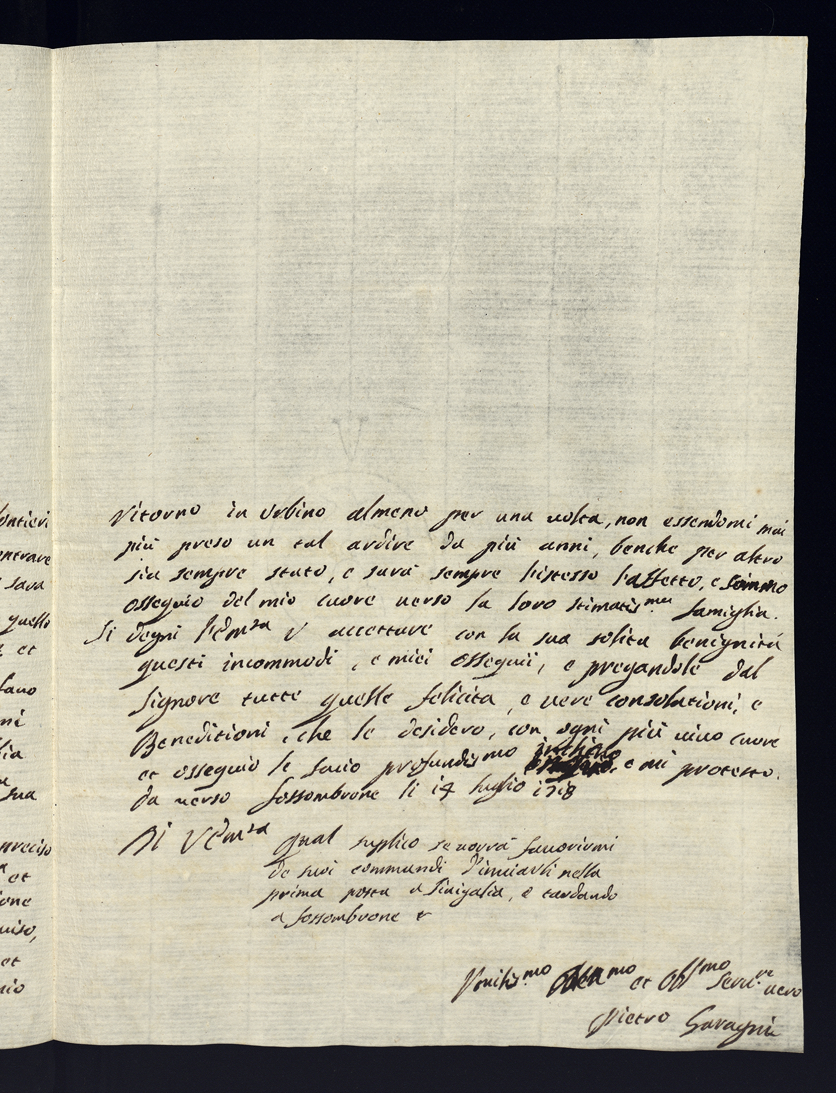 ontieri
entrare
sarà
quello
et
fano
mi
lia
sua
preciso
et
ione
uiso,
et
mio
ritorno in Urbino almeno per una uolta, non essendomi mai
più preso un tal ardire da più anni, benche per altro
sia sempre stato, e sarà sempre l'istesso l'affetto, e sommo
ossequio del mio cuore uerso la loro stimatis.ma famiglia.
Si degni l'Em.za V accettare con la sua solita benignità
questi incommodi, e miei ossequii, e pregandole dal
Signore tutte quelle felicita, e uere consolationi, e
Beneditioni, che le desidero, con ogni più uiuo cuore
et ossequio le facio profundismo inchino e mi protesto.
da uerso fossombrone li 14 luglio 1718
Di V Em.za qual suplico se uorrà fauorirmi
de suoi commandi d'inuiarli nella
prima posta a Sinigalia, e tardando
a fossombrone &
Vmilis.mo et Obl.mo Seru.re uero
Pietro Garagni